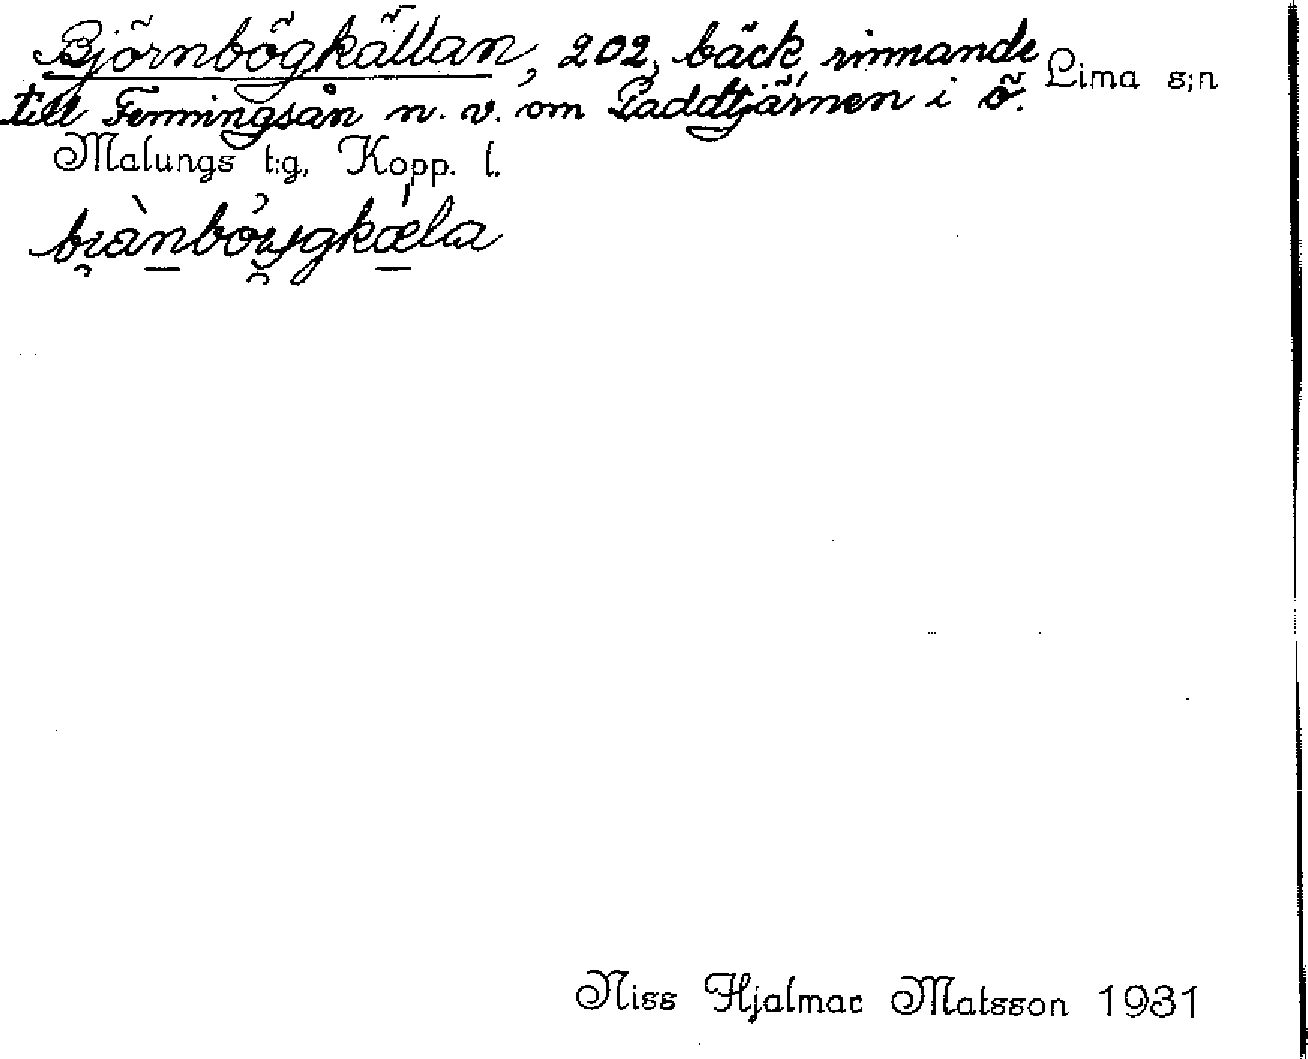 Björnbögkällan, 202, bäck rinnande Lima s;n
till Femningsån n. v. om Paddtjärnen i ö.
Malungs t;g, Kopp. l.
Niss Hjalmar Matsson 1931